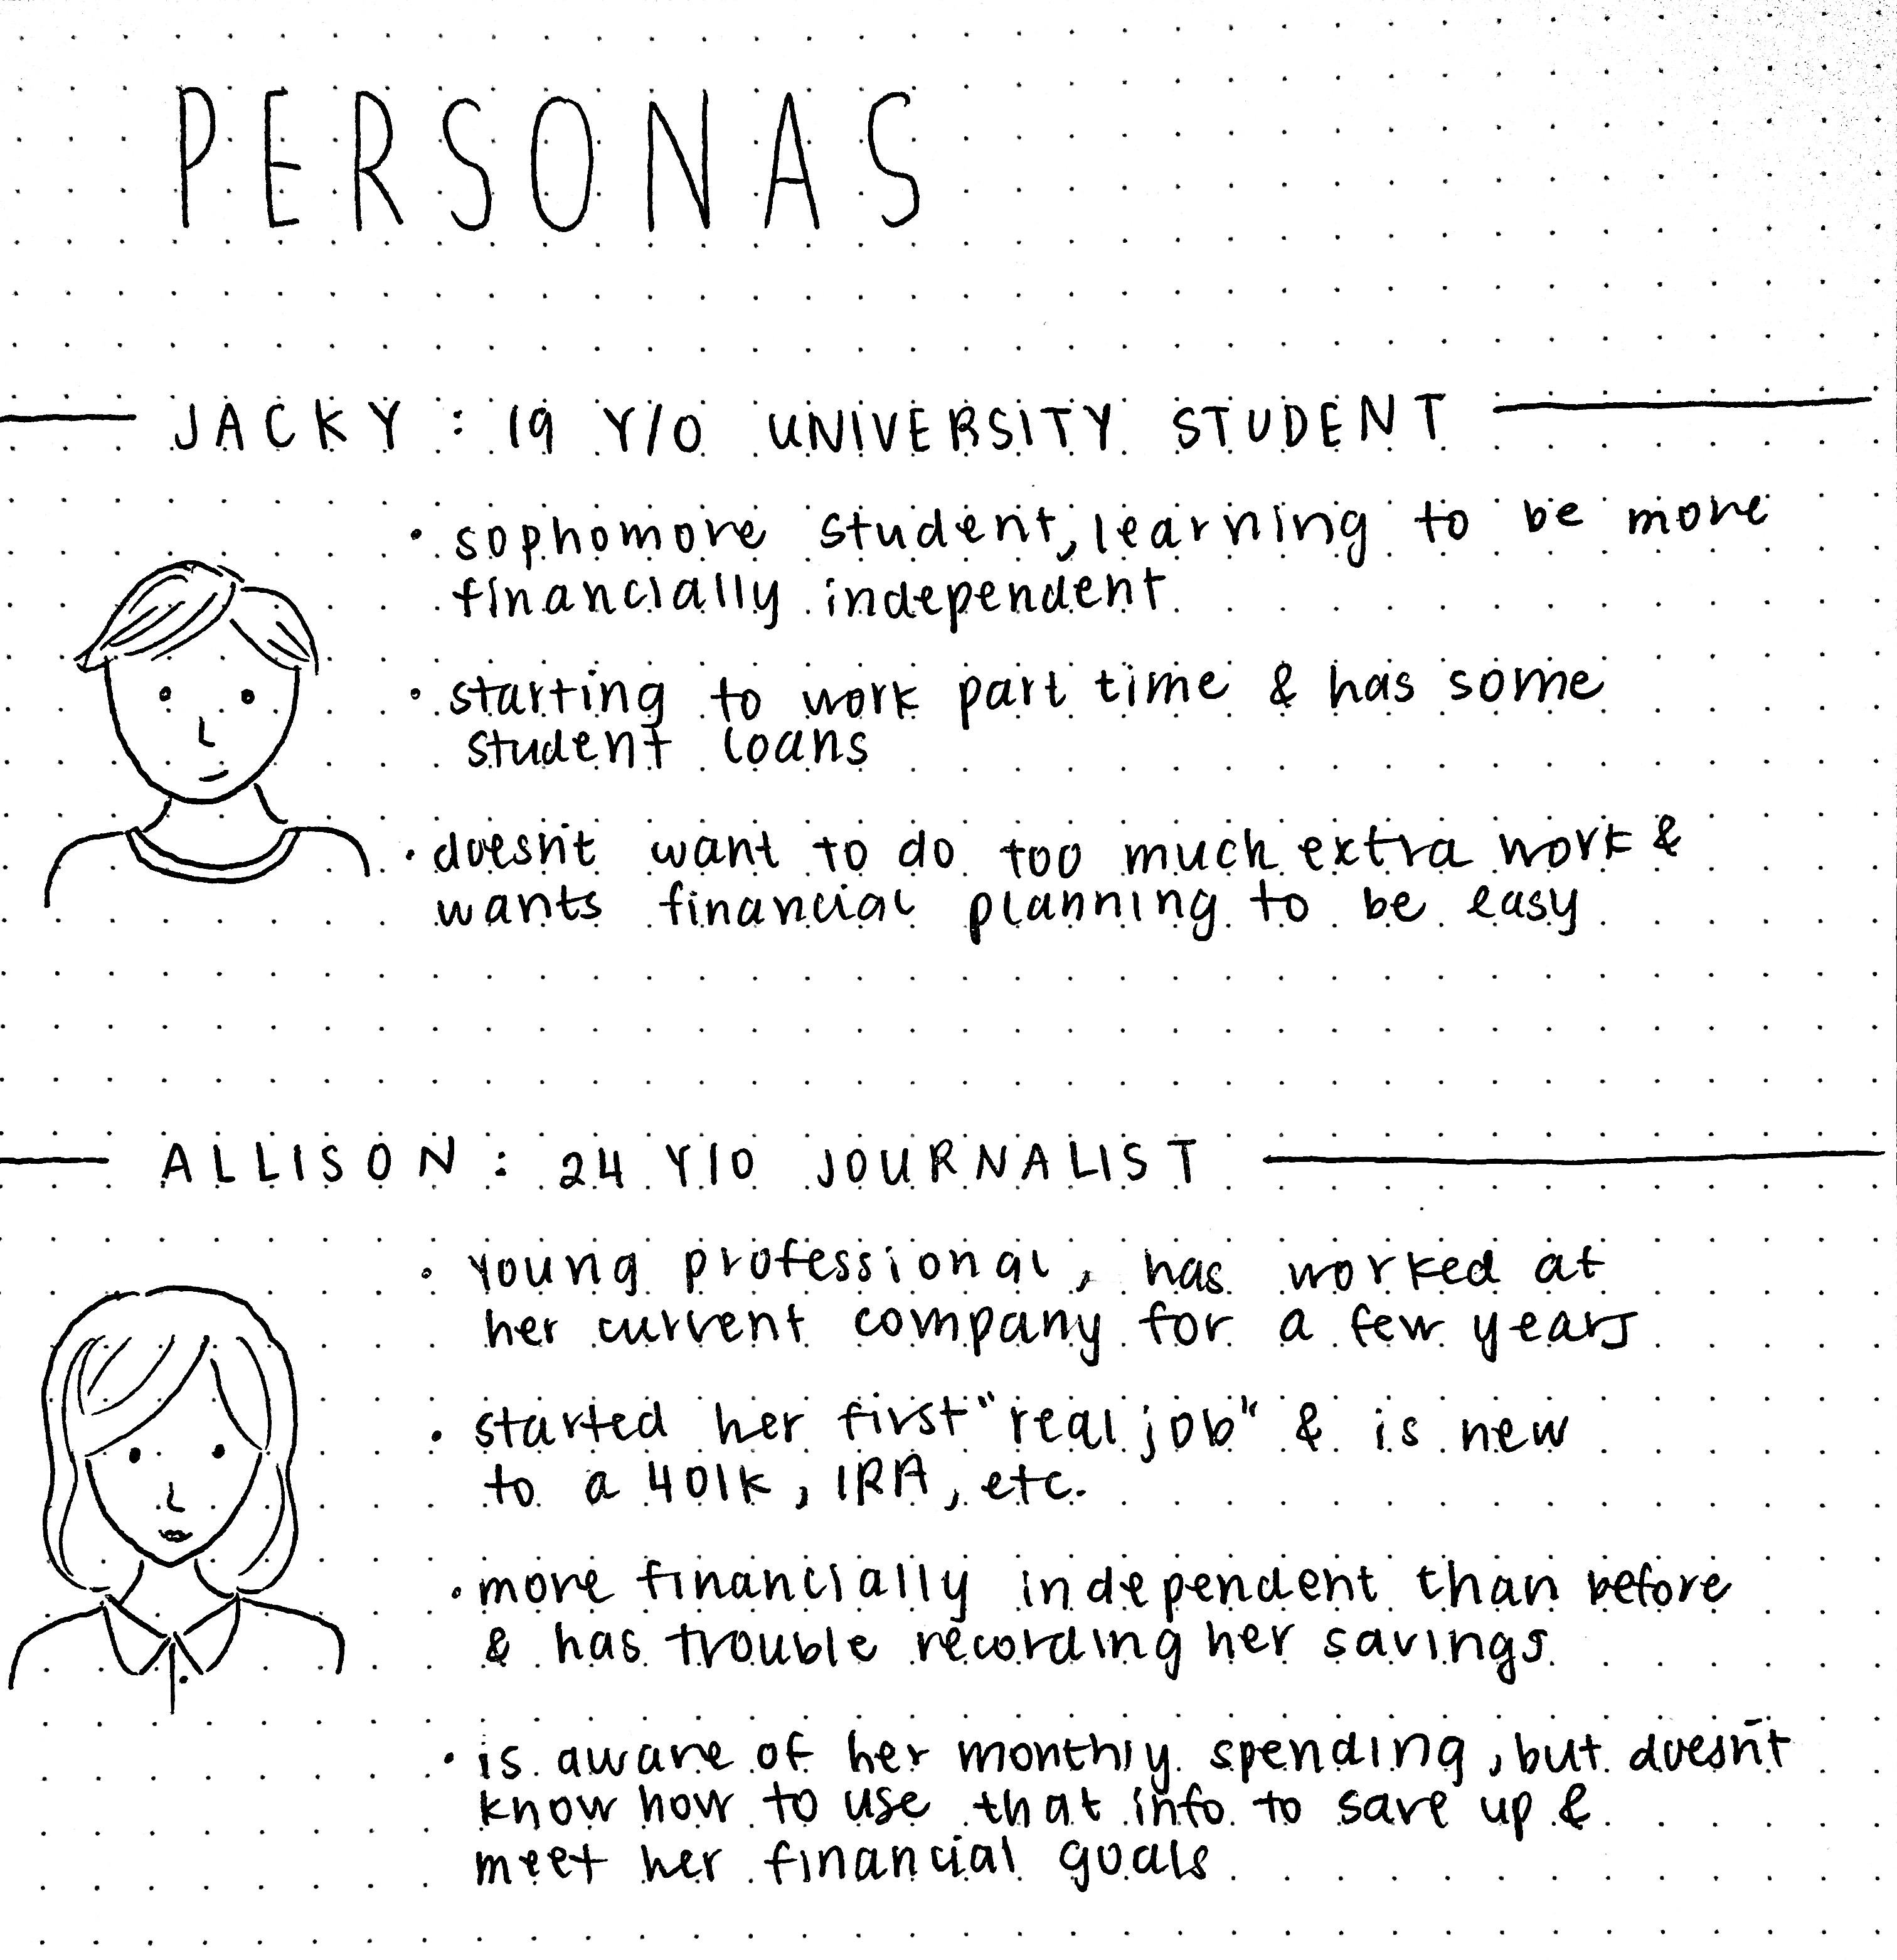 PERSONAS
JACKY : 19 Y/O UNIVERSITY STUDENT
• sophomore student, learning to be more
financially independent
• starting to work part time & has some
student loans
• doesn't want to do too much extra work &
wants financial planning to be easy
ALLISON : 24 Y/O JOURNALIST
• young professional, has worked at
her current company for a few years
• started her first "real job" & is new
to a 401k, IRA, etc.
• more financially independent than before
& has trouble recording her savings
• is aware of her monthly spending, but doesn't
know how to use that info to save up &
meet her financial goals